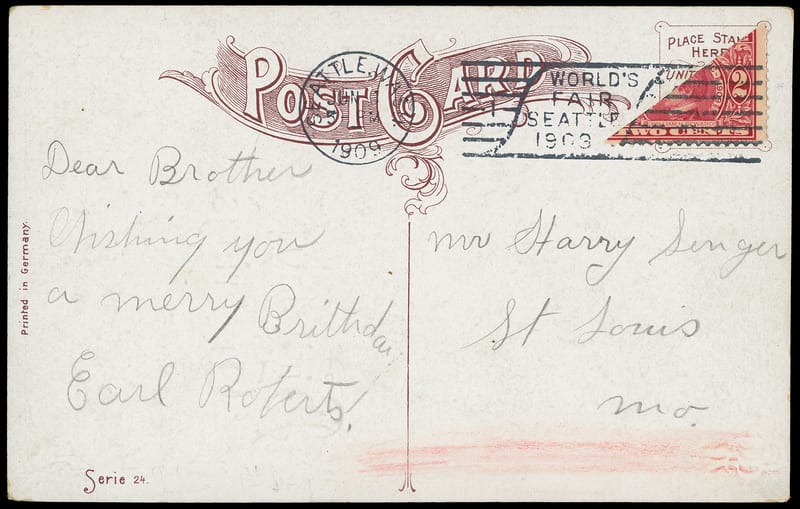 POST CARD
PLACE STA
HERE
SEATTLE, WA
JUN
1909
WORLD'S
FAIR
SEATTLE
1909
UNIT
2
TWO CENTS
Dear Brother
Wishing you
a merry Brithday
Earl Roberts.
mr Harry Singer
St Louis
mo.
Printed in Germany.
Serie 24.